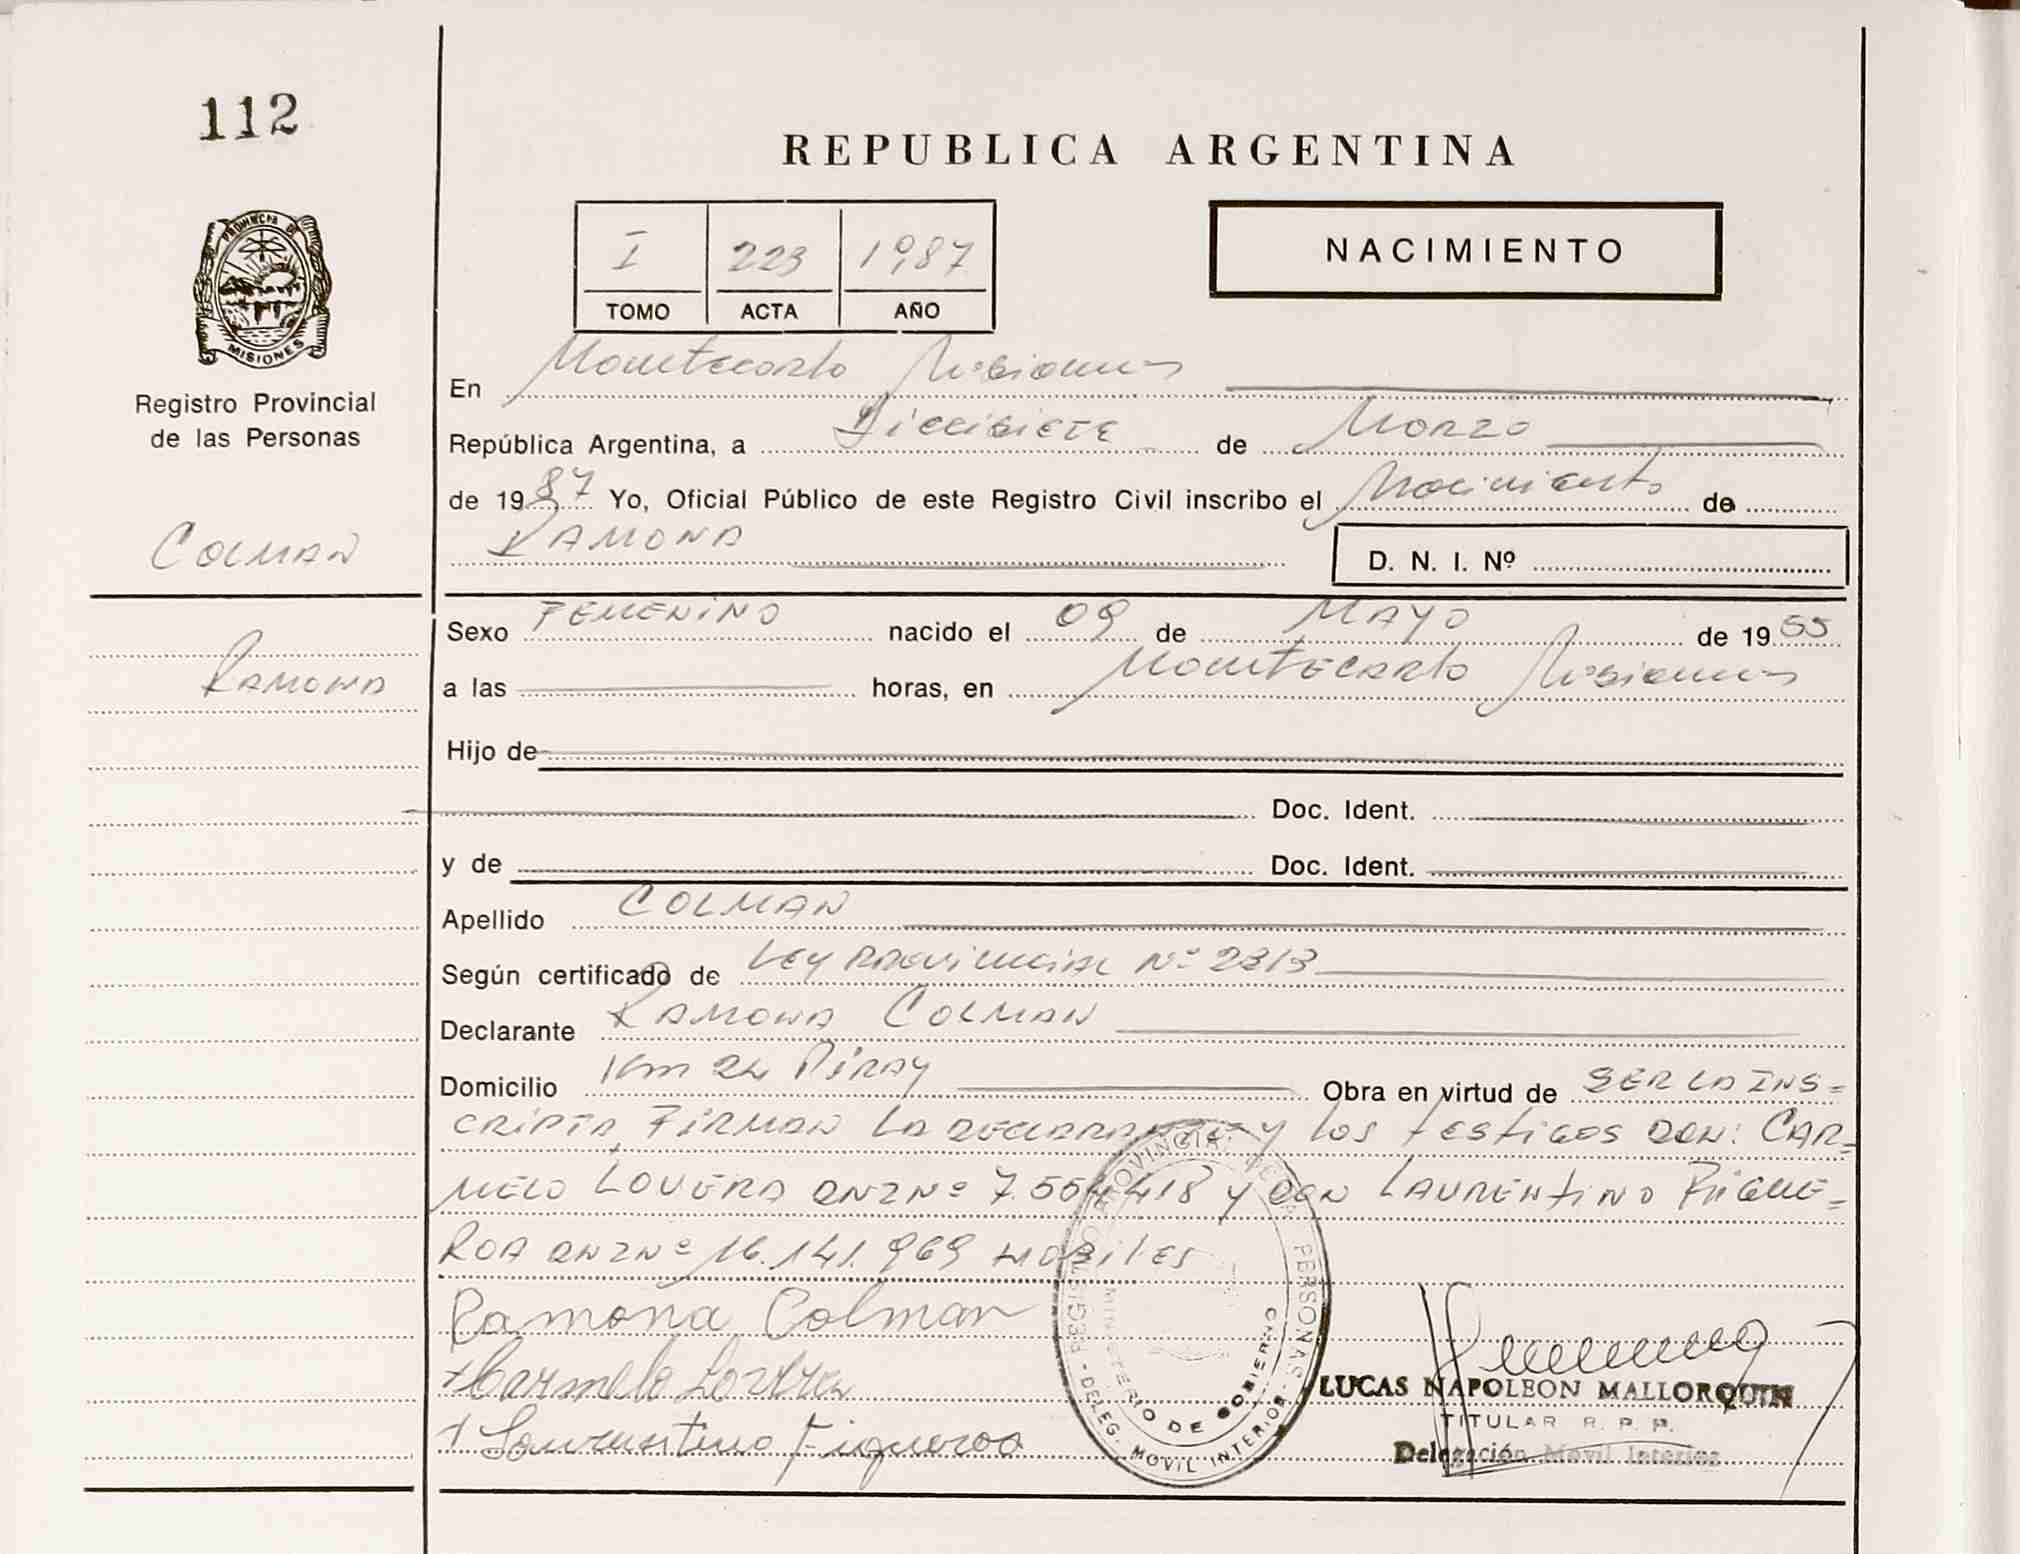 112
REPUBLICA ARGENTINA
I 223 1987
TOMO ACTA AÑO
NACIMIENTO
PROVINCIA DE MISIONES
Registro Provincial
de las Personas
COLMAN
RAMONA
En Montecarlo Misiones
República Argentina, a Diecisiete de Marzo
de 1987 Yo, Oficial Público de este Registro Civil inscribo el Nacimiento de
RAMONA D. N. I. Nº
Sexo FEMENINO nacido el 09 de MAYO de 1955
a las horas, en Montecarlo Misiones
Hijo de
Doc. Ident.
y de Doc. Ident.
Apellido COLMAN
Según certificado de Ley Provincial Nº 2313
Declarante RAMONA COLMAN
Domicilio Km 24 Piray Obra en virtud de SER LA INS=
CRIPTA, FIRMAN LA DECLARANTE y los testigos DON: CAR=
MELO LOVERA DNI Nº 7.554.418 y DON LAURENTINO FIGUE=
ROA DNI Nº 16.141.969 HABILES
Ramona Colman
Carmelo Lovera
Laurentino Figueroa
REGISTRO PROVINCIAL DE LAS PERSONAS - DELEG. MOVIL INTERIOR -
MINISTERIO DE GOBIERNO
LUCAS NAPOLEON MALLORQUIN
TITULAR R. P. P.
Delegación Movil Interior